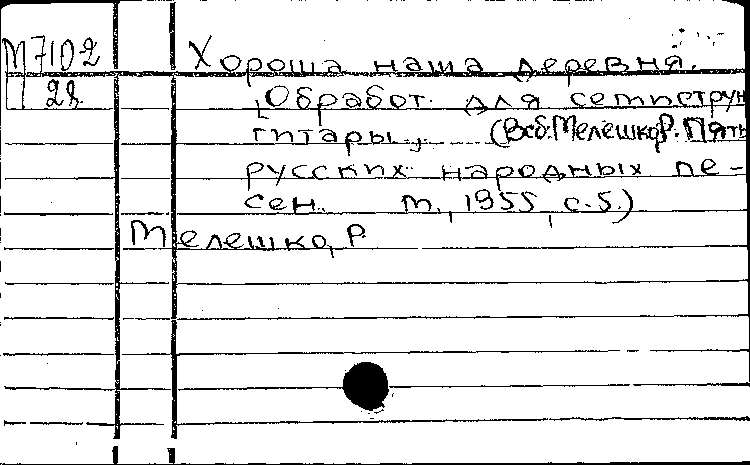 М7102 Хороша наша деревня.
28 [Обработ. для семиструн
гитары., (В сб. Мелешко Р. Пять
русских народных пе-
сен. М., 1955, с.5.)
Мелешко, Р.